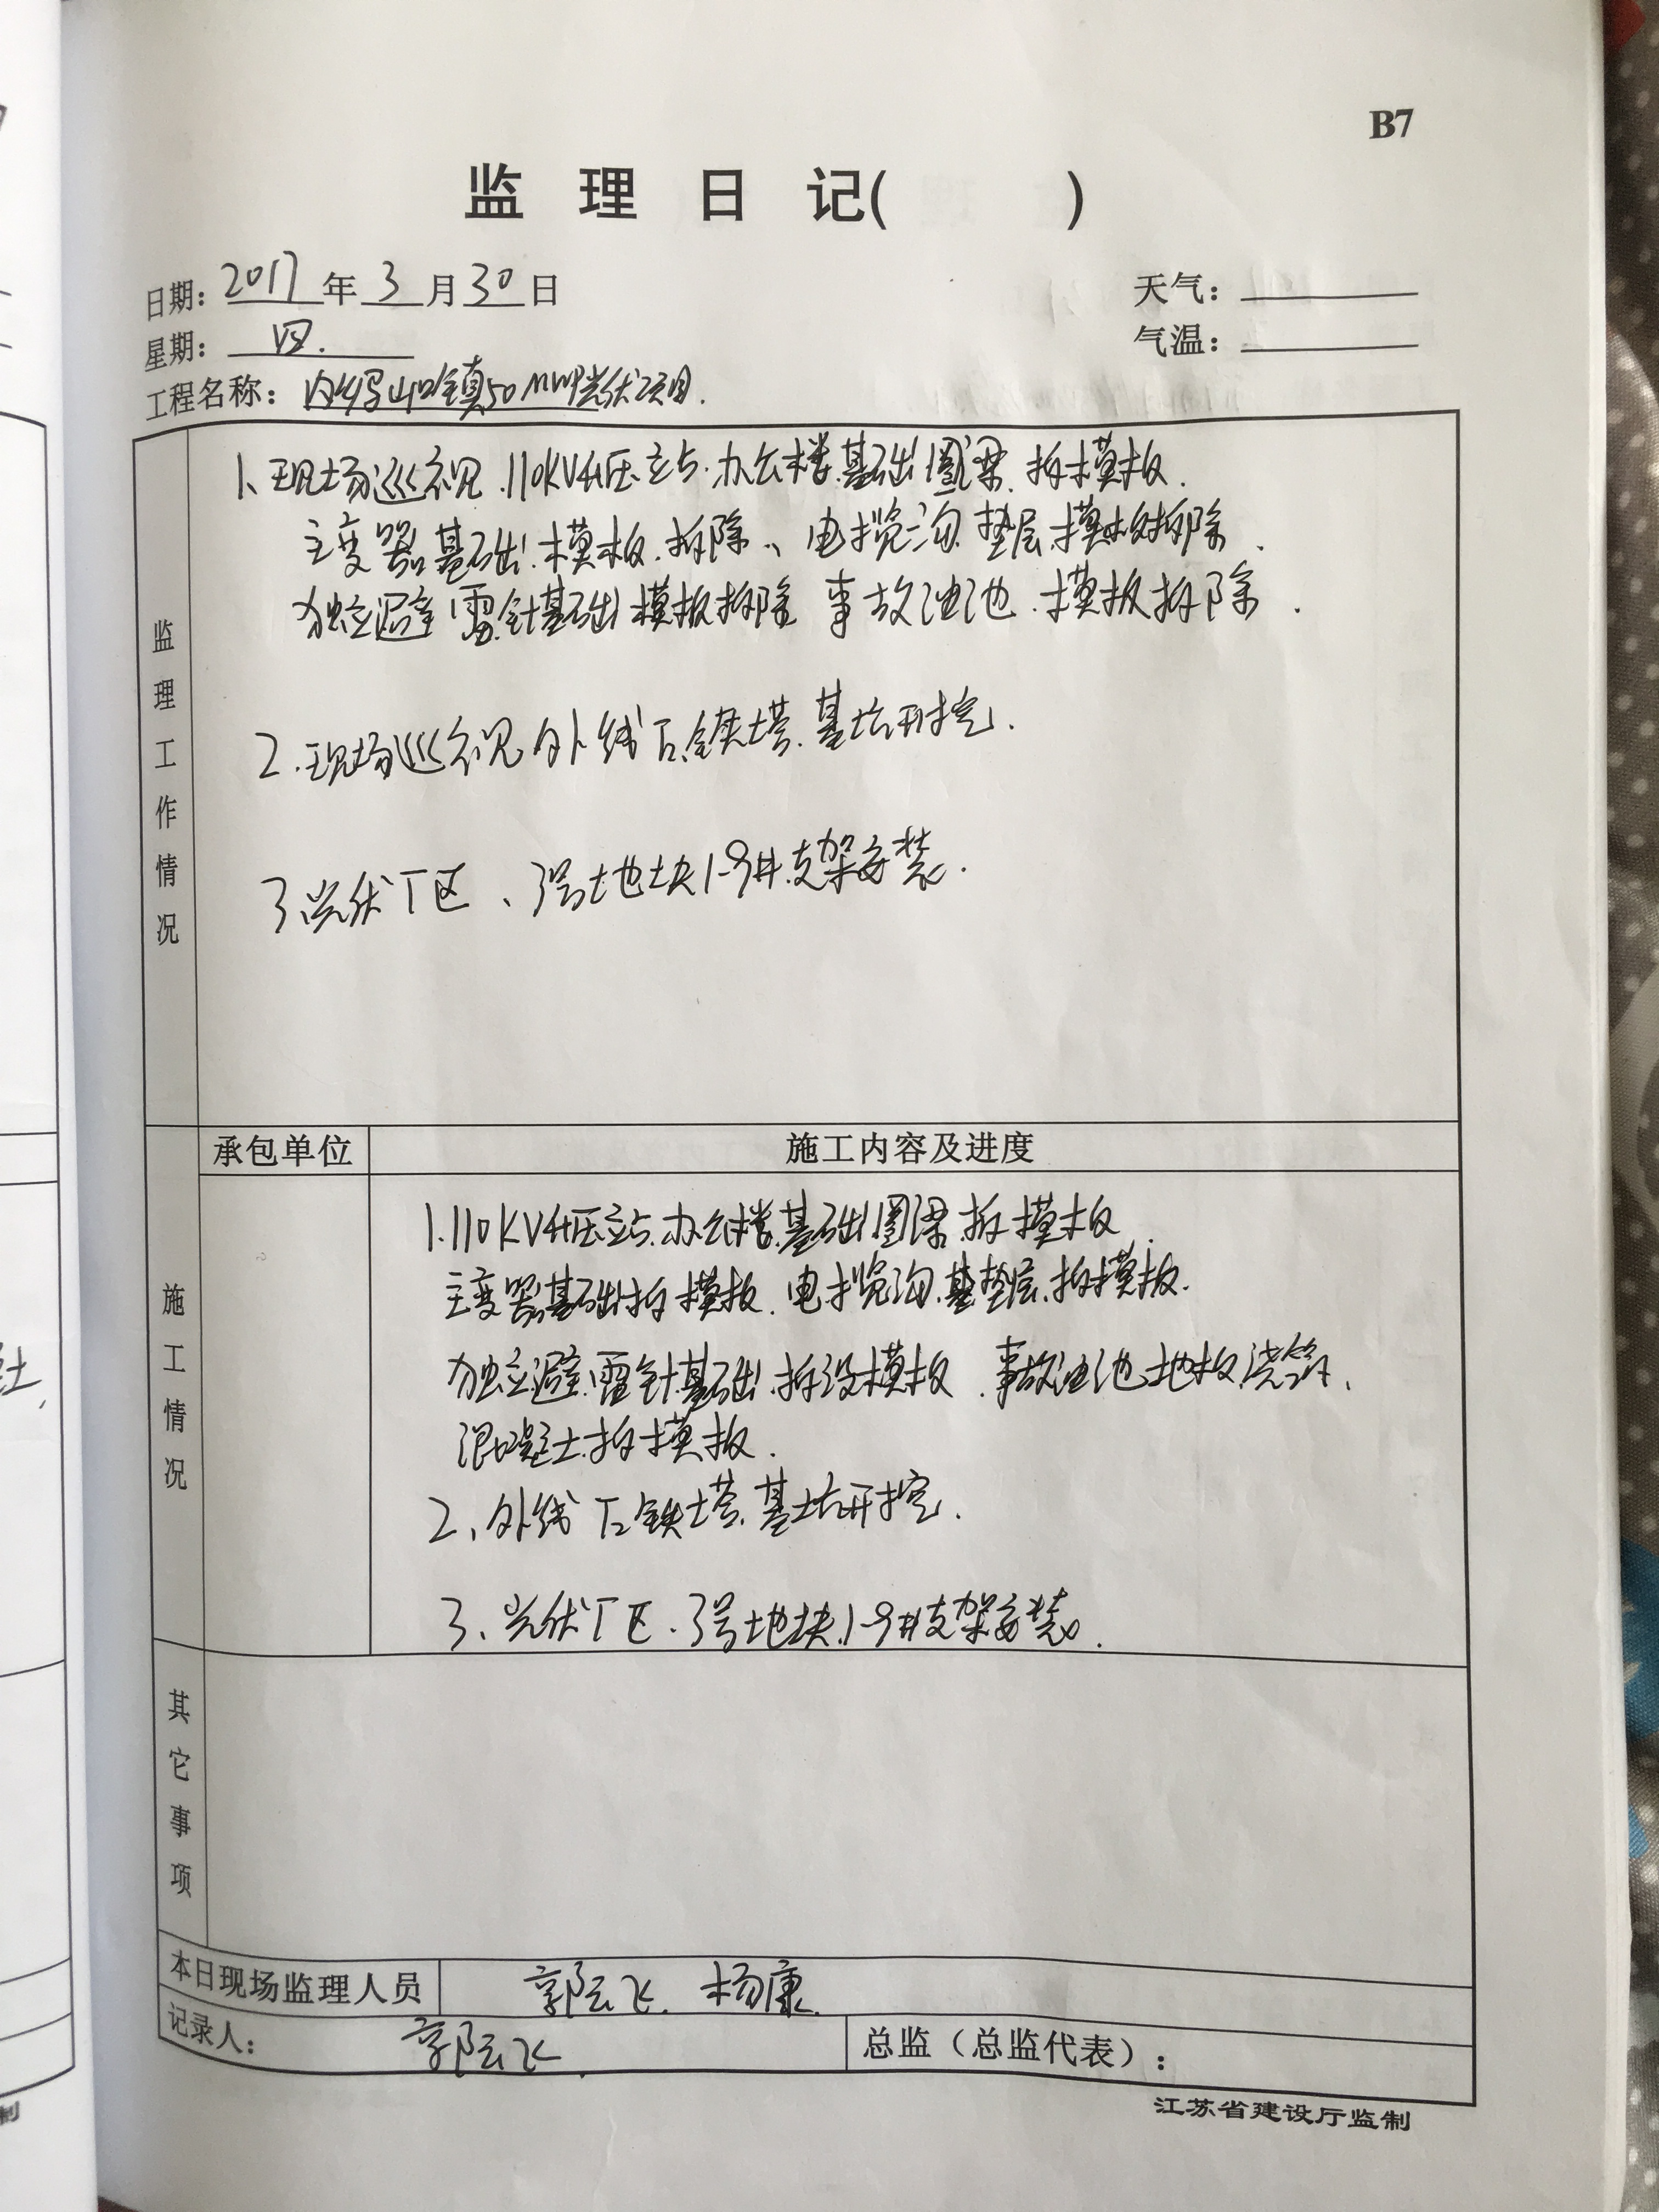 B7
监理日记( )
日期: 2017 年 3 月 30 日
天气:
星期: 四.
气温:
工程名称: 内蒙 山 镇50MWP光伏项目.
监理工作情况
1、现场巡视.110KV升压立占.办公楼.基础圈梁.拆模板.
主变器基础.模板.拆除、电揽沟.垫层.模板拆除.
独立避雷针基础模板拆除 事故油池.模板拆除.
2.现场巡视外线 铁塔.基坑开挖.
3、光伏厂区、3号地块1-9#.支架安装.
承包单位
施工内容及进度
施工情况
1.110KV升压立占.办公楼.基础圈梁.拆模板.
主变器基础拆模板.电揽沟.垫层.拆模板.
独立避雷针基础.拆设模板.事故油池.地板浇筑、
混凝土.拆模板.
2、外线 铁塔.基坑开挖.
3、光伏厂区.3号地块.1-9#支架安装.
其它事项
本日现场监理人员
郭云飞. 杨康.
记录人: 郭云飞.
总监(总监代表):
江苏省建设厅监制
土,
制